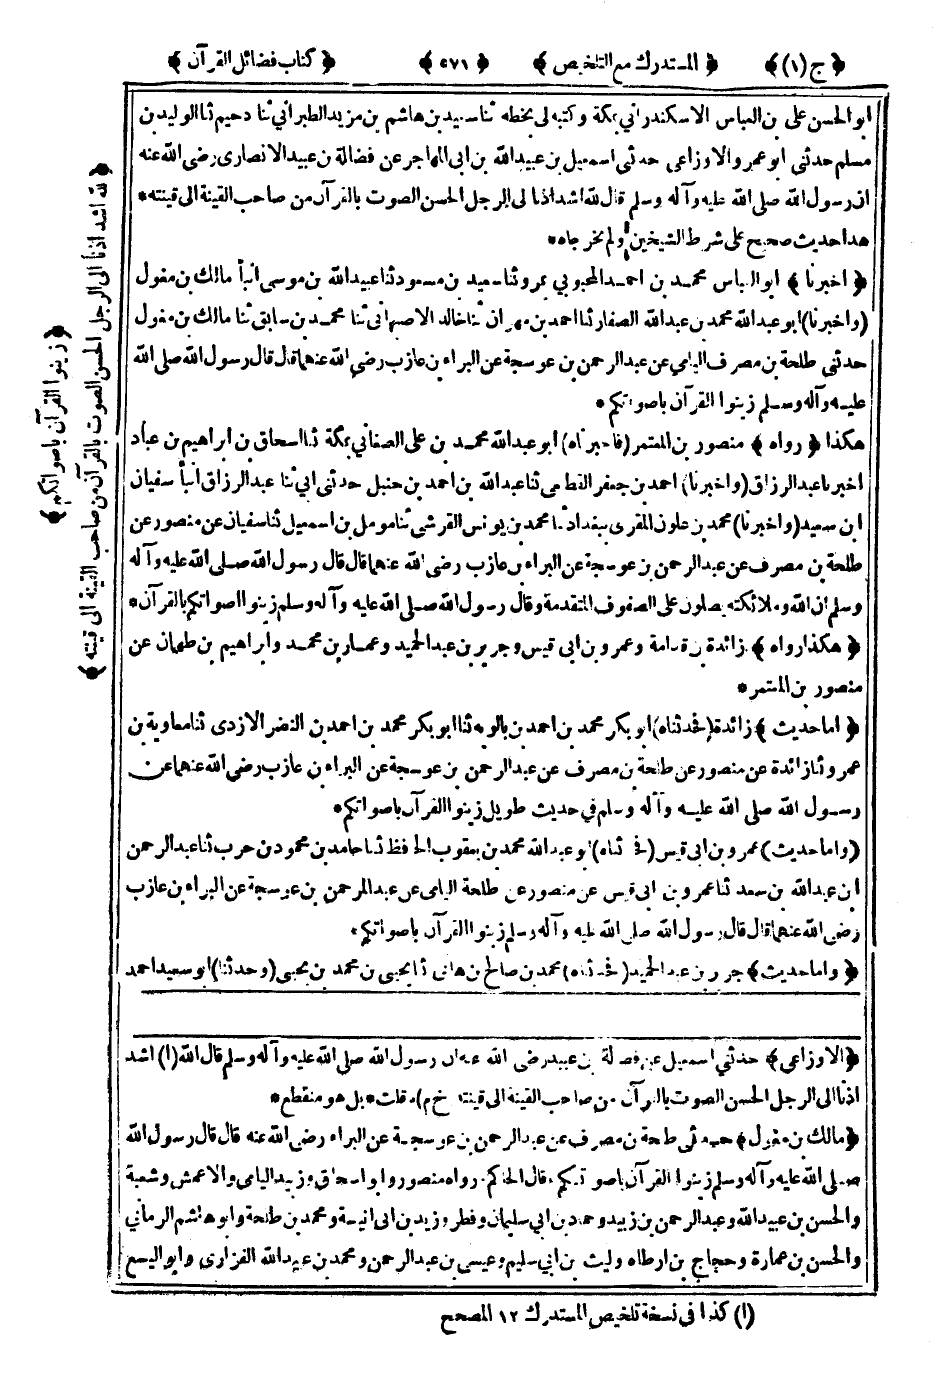 ﴿ ج (١) ﴾ ﴿ المستدرك مع التلخيص ﴾ ﴿ ٥٧١ ﴾ ﴿ كتاب فضائل القرآن ﴾
ابو الحسن على بن العباس الاسكندرانى بمكة وكتبه لى بخطه ثنا سعيد بن هاشم بن مزيد الطبرانى ثنا دحيم ثنا الوليد بن
مسلم حدثنى ابو عمرو الاوزاعى حدثنى اسمعيل بن عبيد الله بن ابى المهاجر عن فضالة بن عبيد الانصارى رضى الله عنه
ان رسول الله صلى الله عليه وآله وسلم قال لله اشد اذنا الى الرجل الحسن الصوت بالقرآن من صاحب القينة الى قينته *
هذا حديث صحيح على شرط الشيخين ولم يخرجاه *
﴿ اخبرنا ﴾ ابو العباس محمد بن احمد المحبوبى بمرو ثنا سعيد بن مسعود ثنا عبيد الله بن موسى انبأ مالك بن مغول
(واخبرنا) ابو عبد الله محمد بن عبد الله الصفار ثنا احمد بن مهران ثنا خالد الاصبهانى ثنا محمد بن سابق ثنا مالك بن مغول
حدثنى طلحة بن مصرف اليامي عن عبد الرحمن بن عوسجة عن البراء بن عازب رضى الله عنهما قال قال رسول الله صلى الله
عليه وآله وسلم زينوا القرآن باصواتكم *
هكذا ﴿ رواه ﴾ منصور بن المعتمر (فاخبرناه) ابو عبد الله محمد بن على الصنعانى بمكة ثنا اسحاق بن ابراهيم بن عباد
اخبرنا عبد الرزاق (واخبرنا) احمد بن جعفر القطيعى ثنا عبد الله بن احمد بن حنبل حدثنى ابى ثنا عبد الرزاق انبأ سفيان
ابن سعيد (واخبرنا) محمد بن علون المقرى ببغداد ثنا محمد بن يونس القرشى ثنا مومل بن اسمعيل ثنا سفيان عن منصور عن
طلحة بن مصرف عن عبد الرحمن بن عوسجة عن البراء بن عازب رضى الله عنهما قال قال رسول الله صلى الله عليه وآله
وسلم ان الله وملائكته يصلون على الصفوف المتقدمة وقال رسول الله صلى الله عليه وآله وسلم زينوا اصواتكم بالقرآن *
﴿ هكذا رواه ﴾ زائدة بن قدامة وعمرو بن ابى قيس وجرير بن عبد الحميد وعمار بن محمد وابراهيم بن طهمان عن
منصور بن المعتمر *
﴿ اما حديث ﴾ زائدة (فحدثناه) ابو بكر محمد بن احمد بن بالويه ثنا ابو بكر محمد بن احمد بن النضر الازدى ثنا معاوية بن
عمرو ثنا زائدة عن منصور عن طلحة بن مصرف عن عبد الرحمن بن عوسجة عن البراء بن عازب رضى الله عنهما عن
رسول الله صلى الله عليه وآله وسلم في حديث طويل زينوا القرآن باصواتكم *
(واما حديث) عمرو بن ابى قيس (فحدثناه) ابو عبد الله محمد بن يعقوب الحافظ ثنا حامد بن محمود بن حرب ثنا عبد الرحمن
ابن عبد الله بن سعد ثنا عمرو بن ابى قيس عن منصور عن طلحة اليامى عن عبد الرحمن بن عوسجة عن البراء بن عازب
رضى الله عنهما قال قال رسول الله صلى الله عليه وآله وسلم زينوا القرآن باصواتكم *
﴿ واما حديث ﴾ جرير بن عبد الحميد (فحدثناه) محمد بن صالح بن هانى ثنا يحيى بن محمد بن يحيى (وحدثنا) ابو سعيد احمد
﴿ الاوزاعى ﴾ حدثني اسمعيل عن فضالة بن عبيد رضى الله عنه ان رسول الله صلى الله عليه وآله وسلم قال الله (١) اشد
اذنا الى الرجل الحسن الصوت بالقرآن من صاحب القينة الى قينته (خ م) . قلت * بل هو منقطع *
﴿ مالك بن مغول ﴾ حدثنى طلحة بن مصرف عن عبد الرحمن بن عوسجة عن البراء رضى الله عنه قال قال رسول الله
صلى الله عليه وآله وسلم زينوا القرآن باصواتكم . قال الحاكم . رواه منصور وابو اسحاق وزبيد اليامى والاعمش وشعبة
والحسن بن عبيد الله وعبد الرحمن بن زبيد وحماد بن ابى سليمان وفطر وزيد بن ابى انيسة ومحمد بن طلحة وابو هاشم الرمانى
والحسن بن عمارة وحجاج بن ارطاه وليث بن ابى سليم وعيسى بن عبد الرحمن ومحمد بن عبيد الله الفزارى وابو اليسع
(١) كذا فى نسخة تلخيص المستدرك ١٢ المصحح
﴿ لله اشد اذنا الى الرجل الحسن الصوت بالقرآن من صاحب القينة الى قينته ﴾
﴿ زينوا القرآن باصواتكم ﴾